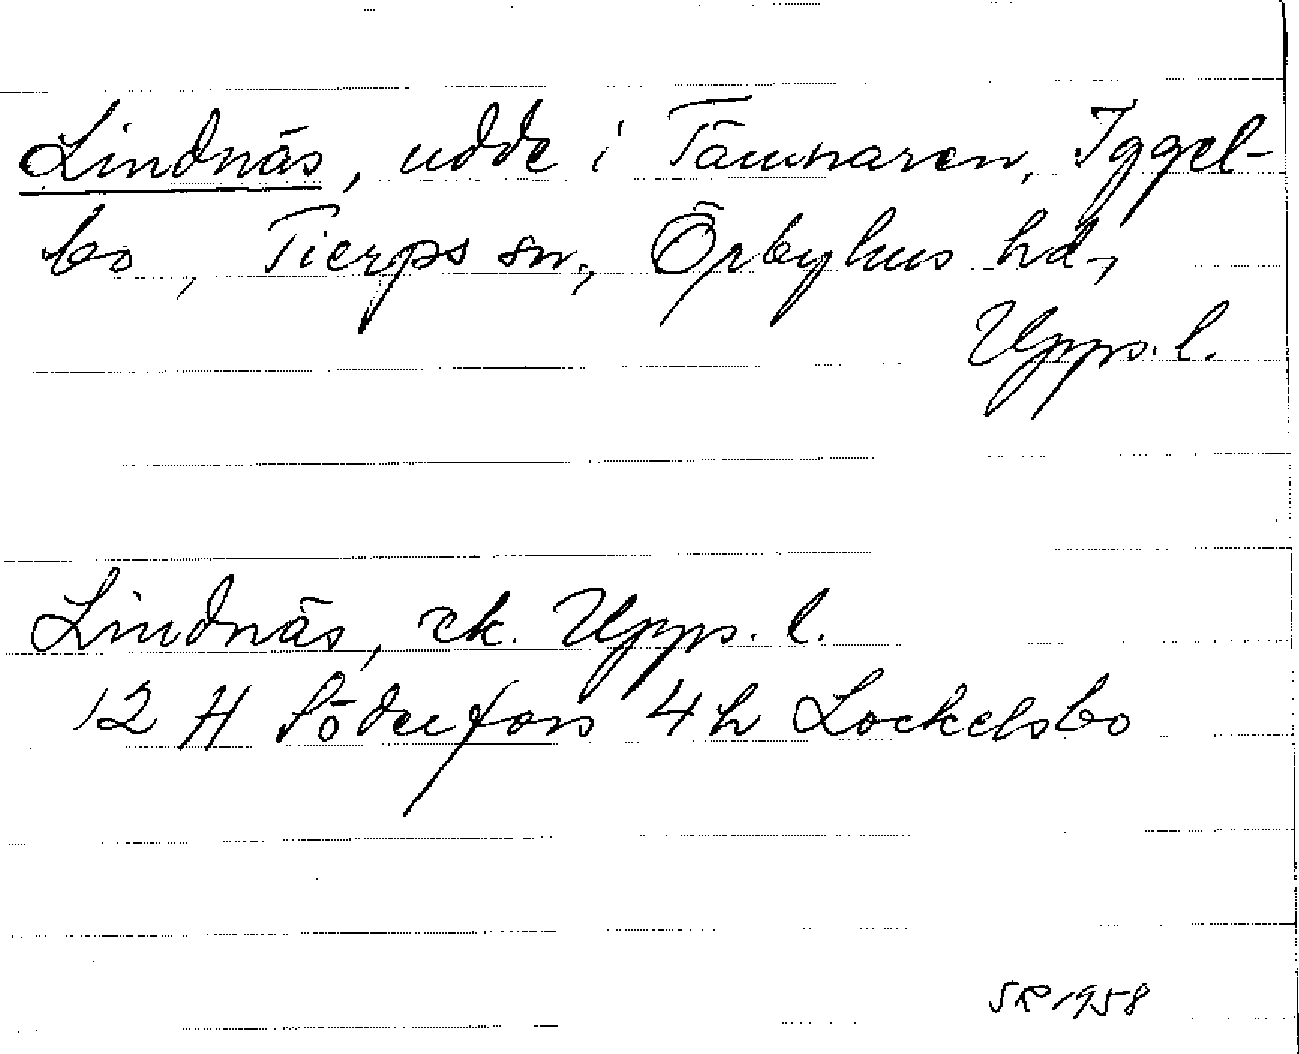 Lindnäs, udde i Tämnaren, Iggel-
bo, Tierps sn., Örbyhus hd,
Upps. l.
Lindnäs, ek. Upps. l.
12 H Söderfors 4h Lockelsbo
SR 1958